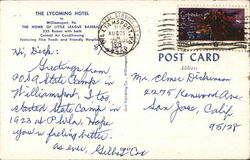 THE LYCOMING HOTEL
in
Williamsport, Pa.
THE HOME OF LITTLE LEAGUE BASEBALL
225 Rooms with bath
Central Air Conditioning
Featuring Fine Foods and Friendly Hospitality
Hi, Dick:
Greetings from
POSofA State Camp in
Williamsport. I too.
State Camp in
1922 at Phila. Hope
you're feeling better.
As ever,
AUG 25
POST CARD
Address
Mr. Elmer Dickinson
2275 Kenwood Ave
San Jose, Calif
95128